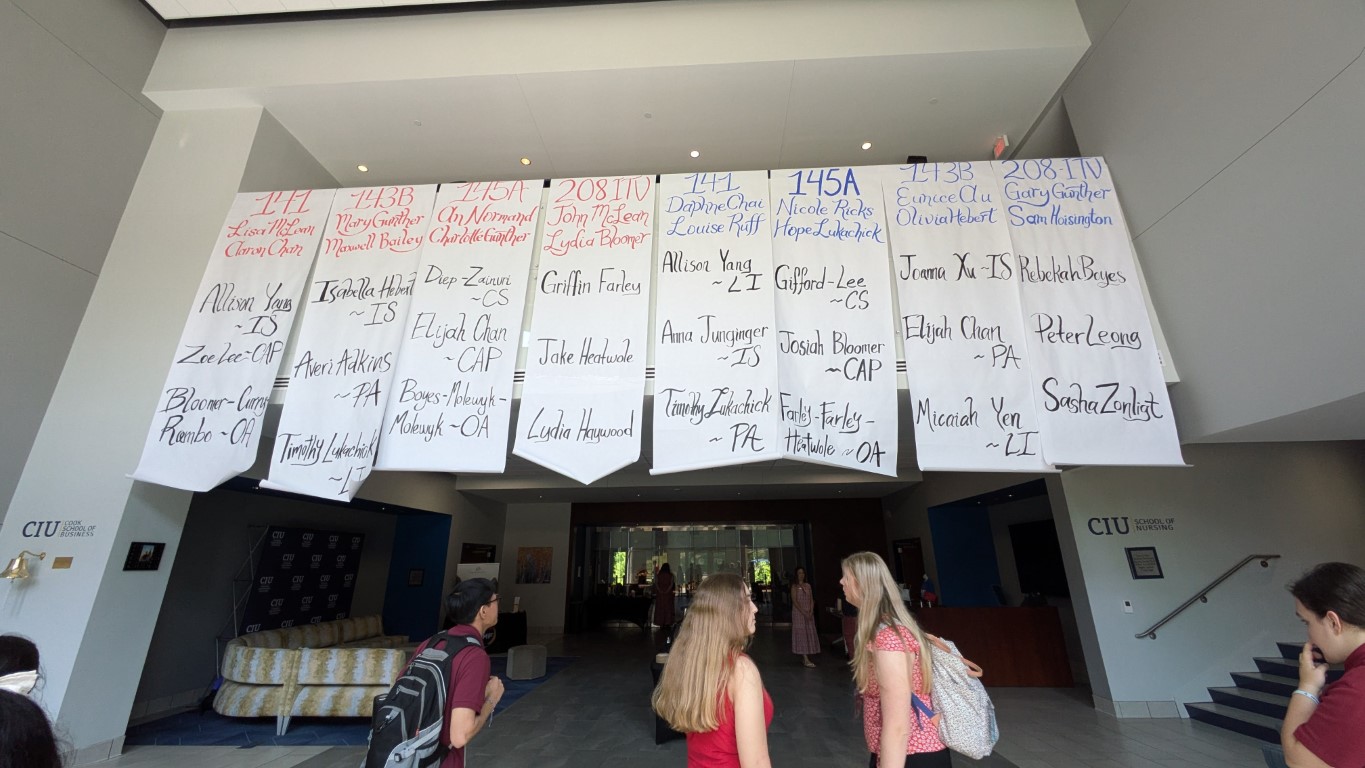 141
Lisa McLean
Aaron Chan
Allison Yang
~IS
Zoe Lee~CAP
Bloomer-Curry
Rambo~OA
143B
Mary Gunther
Maxwell Bailey
Isabella Hebert
~IS
Averi Adkins
~PA
Timothy Lukachick
~LI
145A
An Normand
Charlotte Gunther
Diep-Zainuri
~CS
Elijah Chan
~CAP
Boyes-Molewyk-
Molewyk~OA
208-ITV
John McLean
Lydia Bloomer
Griffin Farley
Jake Heatwole
Lydia Haywood
141
Daphne Chai
Louise Ruff
Allison Yang
~LI
Anna Junginger
~IS
Timothy Lukachick
~PA
145A
Nicole Ricks
Hope Lukachick
Gifford-Lee
~CS
Josiah Bloomer
~CAP
Farley-Farley-
Heatwole~OA
143B
Eunice Au
Olivia Hebert
Joanna Xu~IS
Elijah Chan
~PA
Micaiah Yen
~LI
208-ITV
Gary Gunther
Sam Hoisington
Rebekah Boyes
Peter Leong
CIU COOK
SCHOOL OF
BUSINESS
CIU SCHOOL OF
NURSING
CIU